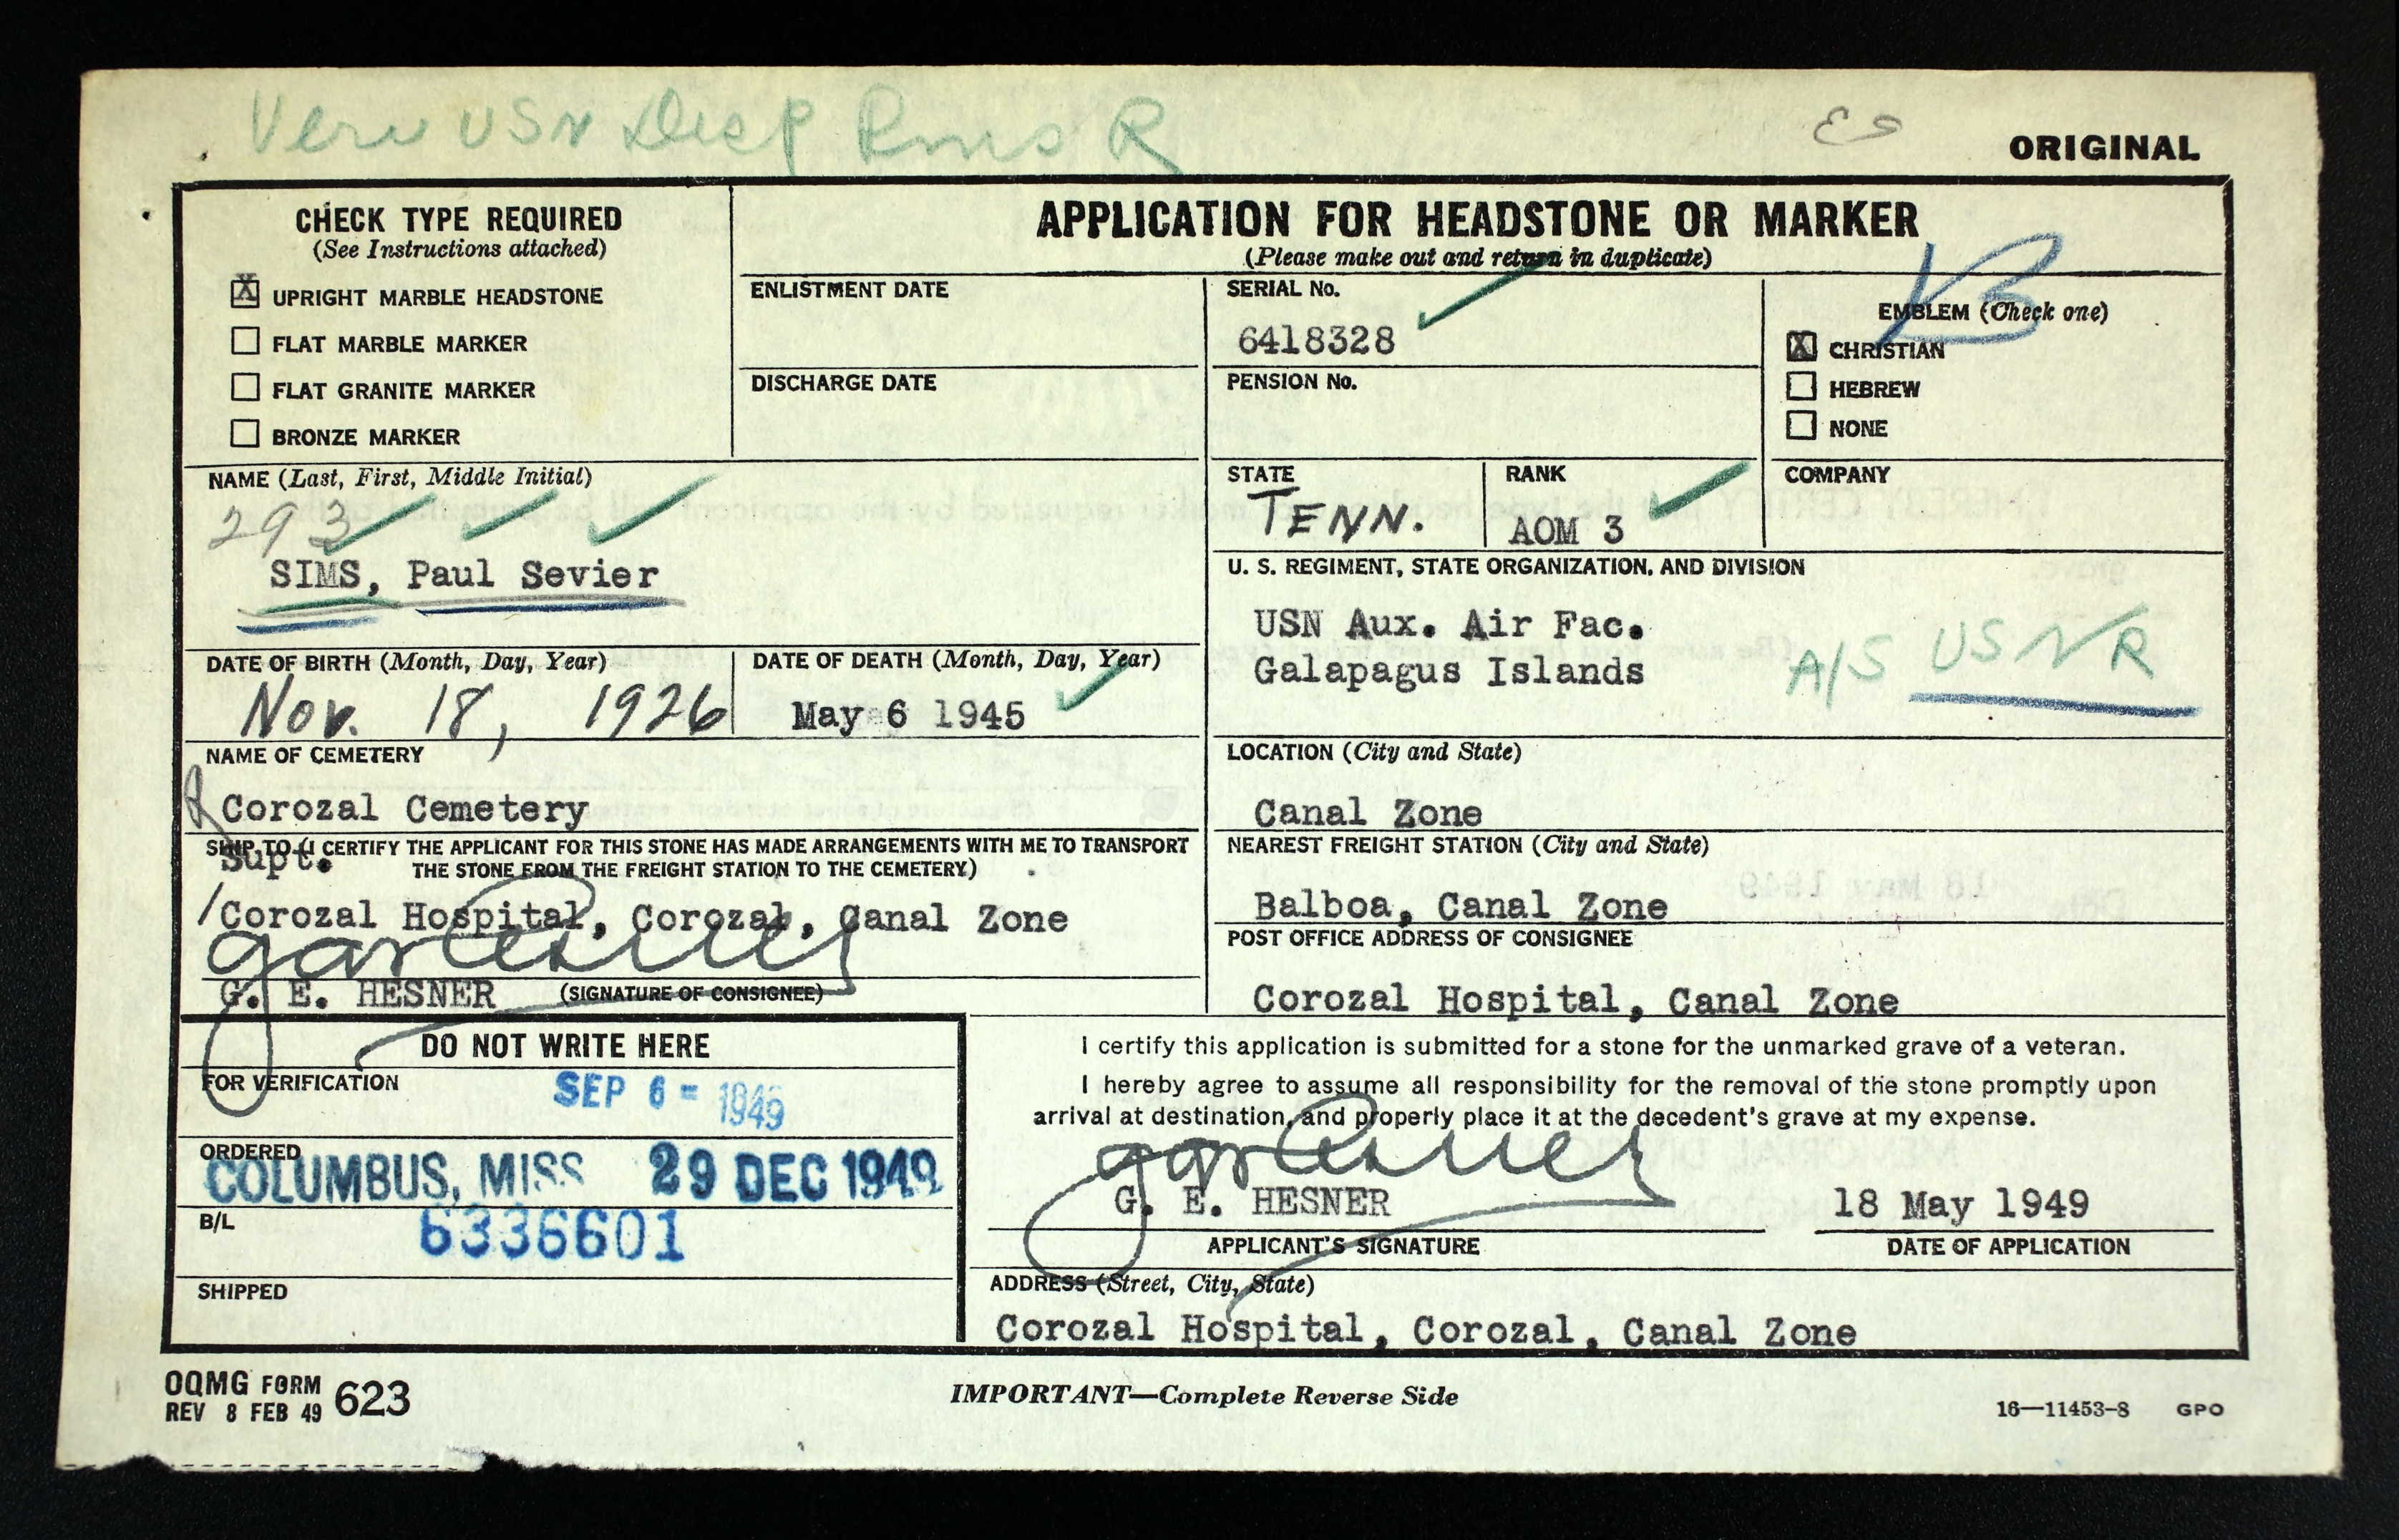 Veri USN Disp Rms R
ES
ORIGINAL
CHECK TYPE REQUIRED
(See Instructions attached)
X UPRIGHT MARBLE HEADSTONE
FLAT MARBLE MARKER
FLAT GRANITE MARKER
BRONZE MARKER
APPLICATION FOR HEADSTONE OR MARKER
(Please make out and return in duplicate)
ENLISTMENT DATE
DISCHARGE DATE
SERIAL No.
6418328
PENSION No.
B
EMBLEM (Check one)
X CHRISTIAN
HEBREW
NONE
NAME (Last, First, Middle Initial)
293
SIMS, Paul Sevier
STATE
TENN.
RANK
AOM 3
COMPANY
U. S. REGIMENT, STATE ORGANIZATION, AND DIVISION
USN Aux. Air Fac.
Galapagus Islands
A/S USNR
DATE OF BIRTH (Month, Day, Year)
Nov. 18, 1926
DATE OF DEATH (Month, Day, Year)
May 6 1945
NAME OF CEMETERY
Corozal Cemetery
LOCATION (City and State)
Canal Zone
SHIP TO (I CERTIFY THE APPLICANT FOR THIS STONE HAS MADE ARRANGEMENTS WITH ME TO TRANSPORT
THE STONE FROM THE FREIGHT STATION TO THE CEMETERY)
Supt.
/Corozal Hospital, Corozal, Canal Zone
G. E. HESNER (SIGNATURE OF CONSIGNEE)
NEAREST FREIGHT STATION (City and State)
Balboa, Canal Zone
POST OFFICE ADDRESS OF CONSIGNEE
Corozal Hospital, Canal Zone
DO NOT WRITE HERE
FOR VERIFICATION
SEP 6 - 1949
ORDERED
COLUMBUS, MISS 29 DEC 1949
B/L
6336601
SHIPPED
I certify this application is submitted for a stone for the unmarked grave of a veteran.
I hereby agree to assume all responsibility for the removal of the stone promptly upon
arrival at destination, and properly place it at the decedent's grave at my expense.
G. E. HESNER
18 May 1949
APPLICANT'S SIGNATURE
DATE OF APPLICATION
ADDRESS (Street, City, State)
Corozal Hospital, Corozal, Canal Zone
OQMG FORM 623
REV 8 FEB 49
IMPORTANT—Complete Reverse Side
16—11453-8 GPO